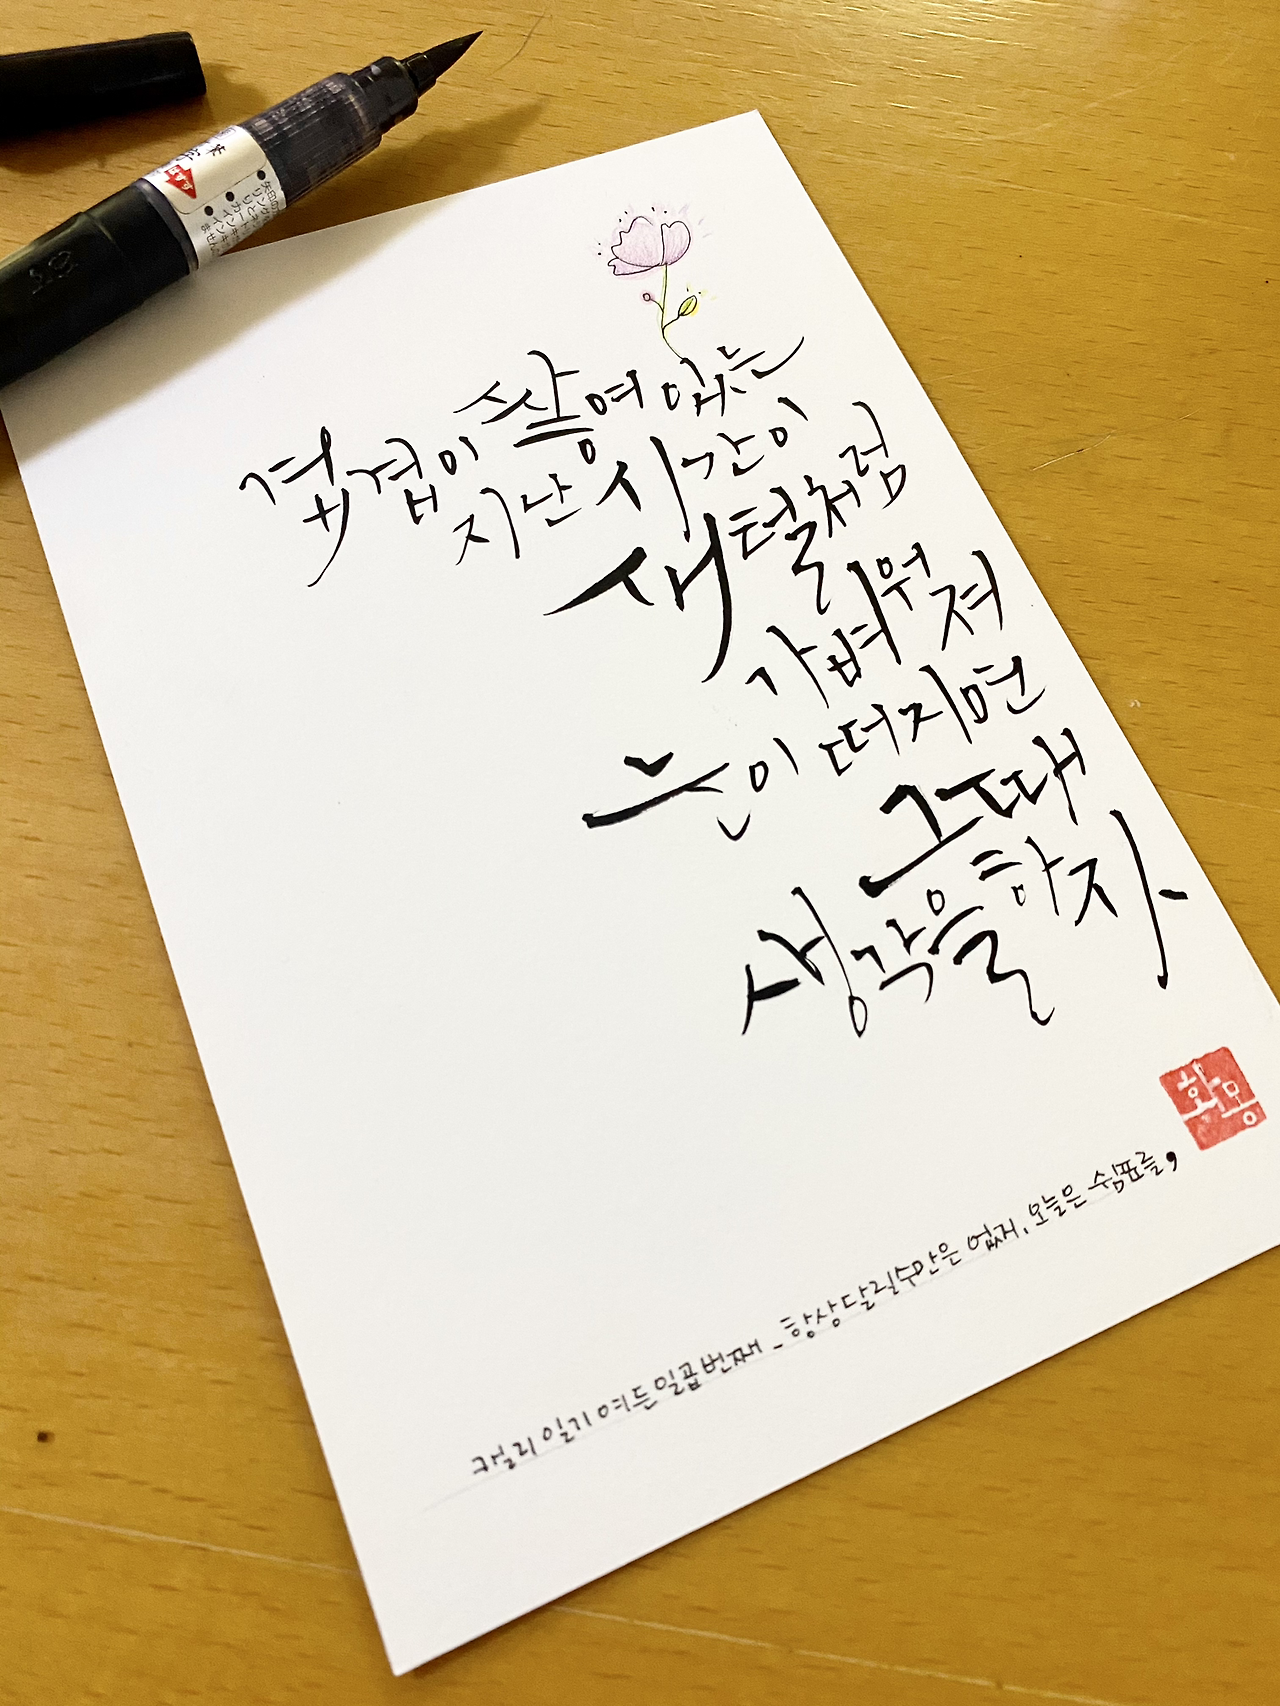 겹겹이 쌓여 있는
지난 시간이
새털처럼
가벼워져
눈이 떠지면
그대
생각을 하자
화몽
캘리 일기 여든일곱번째 - 항상 달릴수만은 없지. 오늘은 쉼표를,